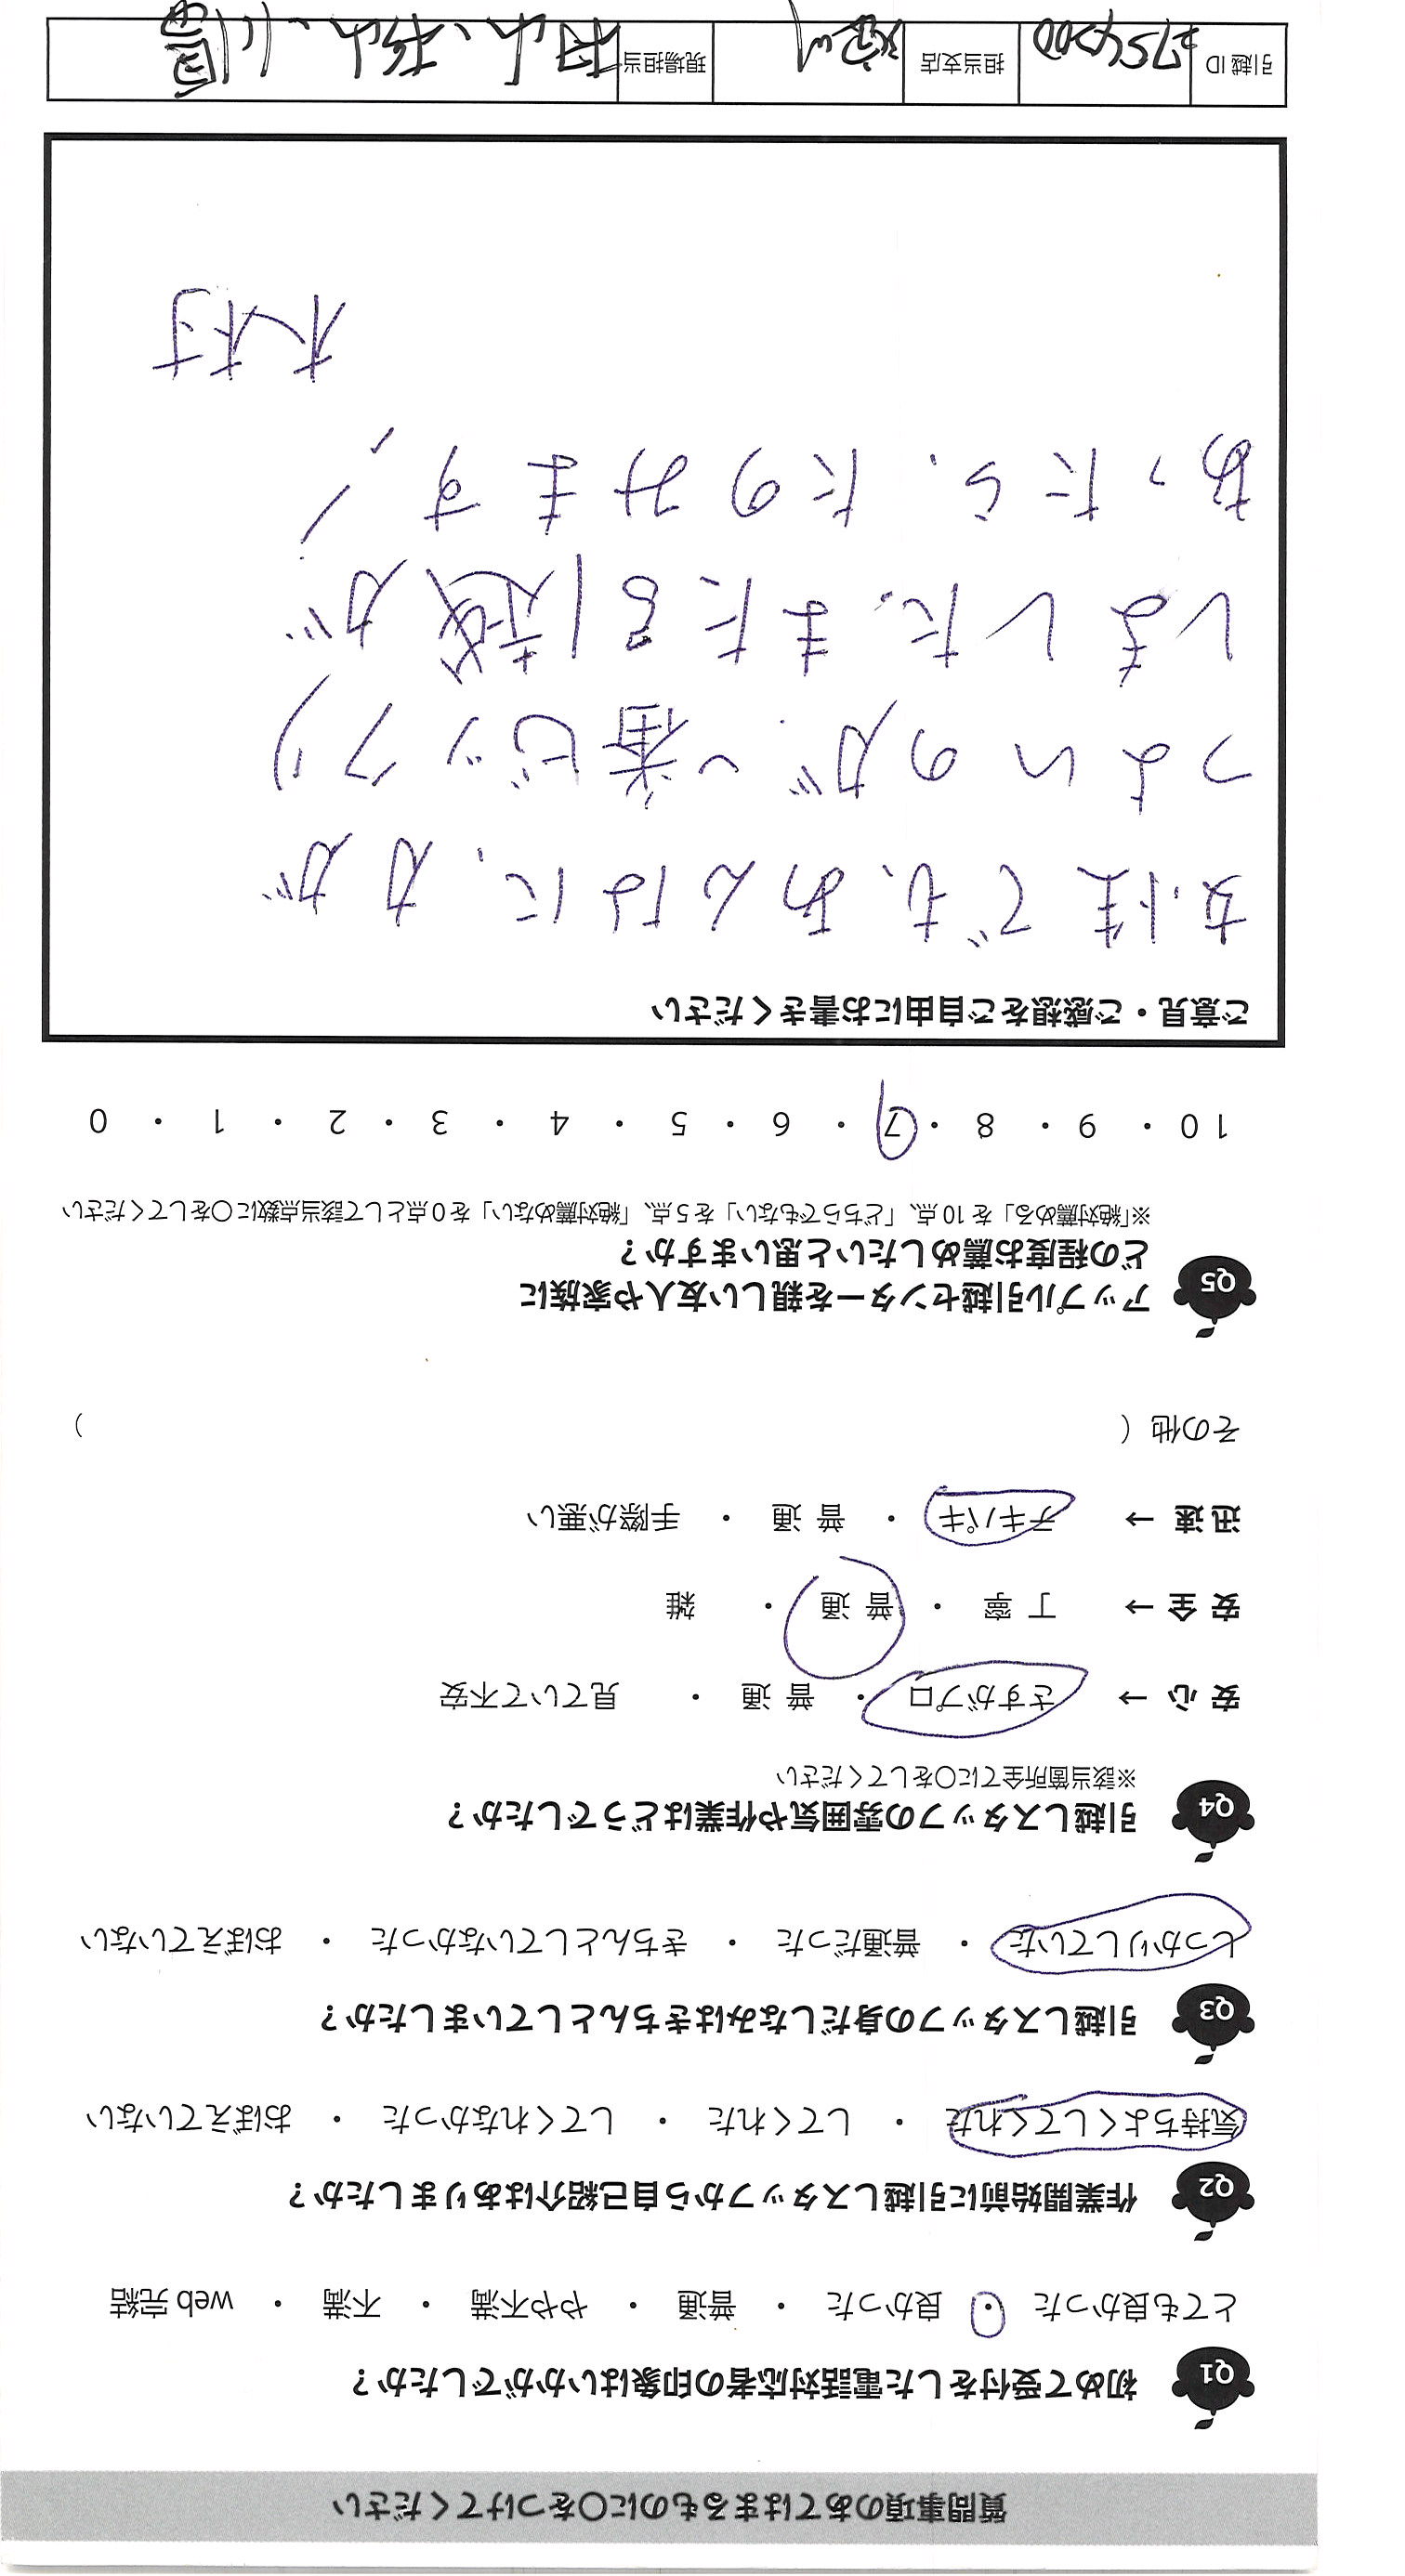 質問事項のあてはまるものに〇をつけてください
Q1 初めて受付をした電話対応者の印象はいかがでしたか？
とても良かった ・ 良かった ・ 普通 ・ やや不満 ・ 不満 ・ web 完結
Q2 作業開始前に引越しスタッフから自己紹介はありましたか？
気持ちよくしてくれた ・ してくれた ・ してくれなかった ・ おぼえていない
Q3 引越しスタッフの身だしなみはきちんとしていましたか？
しっかりしていた ・ 普通だった ・ きちんとしていなかった ・ おぼえていない
Q4 引越しスタッフの雰囲気や作業はどうでしたか？
※該当箇所全てに〇をしてください
安 心 → さすがプロ ・ 普 通 ・ 見ていて不安
安 全 → 丁 寧 ・ 普 通 ・ 雑
迅 速 → テキパキ ・ 普 通 ・ 手際が悪い
その他 （ ）
Q5 アップル引越センターを親しい友人や家族に
どの程度お薦めしたいと思いますか？
※「絶対薦める」を 10 点、「どちらでもない」を 5 点、「絶対薦めない」を 0 点として該当点数に〇をしてください
10 ・ 9 ・ 8 ・ 7 ・ 6 ・ 5 ・ 4 ・ 3 ・ 2 ・ 1 ・ 0
ご意見・ご感想をご自由にお書きください
女性でも、あんなに、力が
つよいのが、一番ビックリ
しました。またる引越が
あったら、たのみます！
木村
引越 ID 担当支店 現場担当